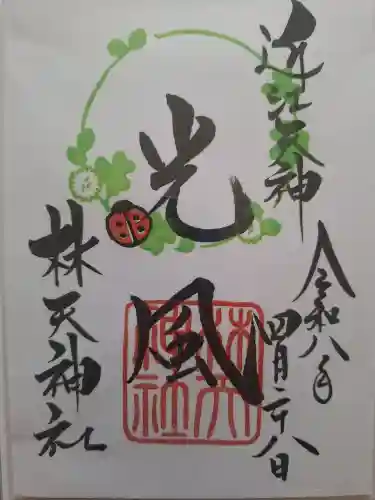 近江天神
令和八年
四月二十八日
光風
林天神社
林天神社